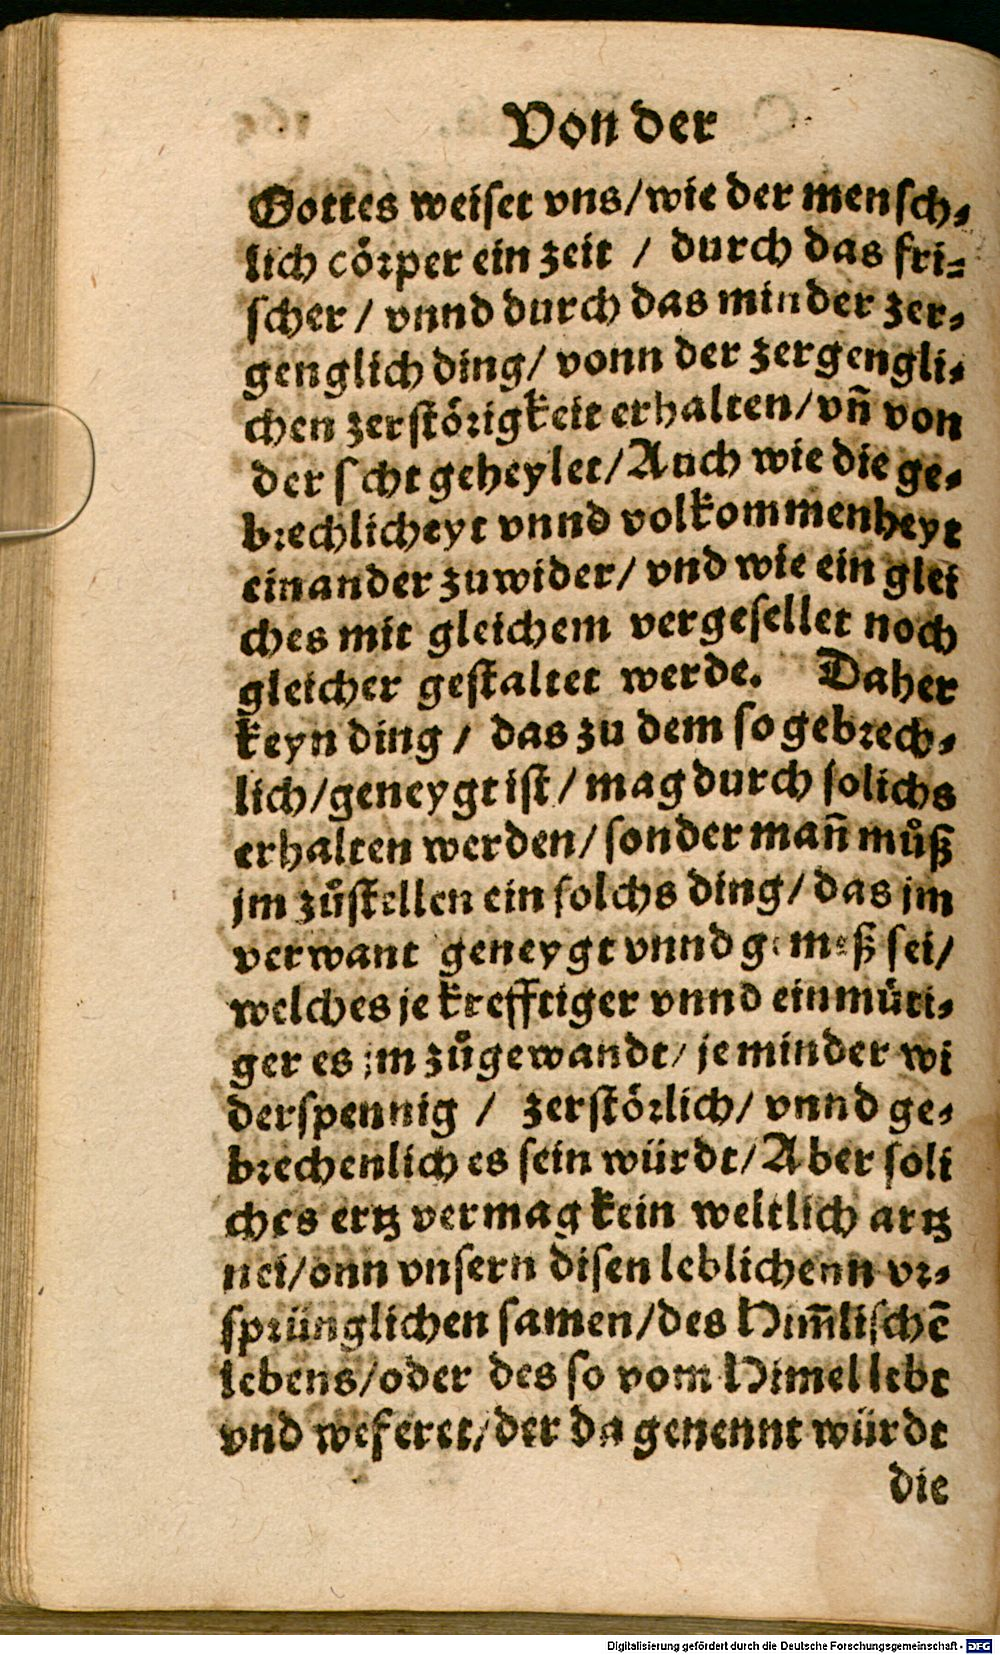 Von der
Gottes weiſet vns/wie der menſch⸗
lich coͤꝛper ein zeit / durch das fri⸗
ſcher / vnnd durch das minder zer⸗
genglich ding/ vonn der zergengli⸗
chen zerſtoͤꝛigkeit erhalten/vñ von
der ſcht geheylet/Auch wie die ge⸗
bꝛechlicheyt vnnd volkommenheyt
einander zuwider/ vnd wie ein glei
ches mit gleichem vergeſellet noch
gleicher geſtaltet werde. Daher
keyn ding / das zu dem ſo gebꝛech⸗
lich/geneygt iſt / mag durch ſolichs
erhalten werden/ ſonder mañ muͦß
jm zuͦſtellen ein ſolchs ding/ das jm
verwant geneygt vnnd gemeß ſei/
welches je krefftiger vnnd einmuͤti⸗
ger es jm zuͦgewandt/ je minder wi
derſpennig / zerſtoͤꝛlich/ vnnd ge⸗
bꝛechenlich es ſein würdt/ Aber ſoli
ches ertz vermag kein weltlich artz
nei/onn vnſern diſen leblichenn vꝛ⸗
ſpꝛünglichen ſamen/des Him̃liſchẽ
lebens/oder des ſo vom Himel lebt
vnd weſeret/der da genennt würdt
die
Digitalisierung gefördert durch die Deutsche Forschungsgemeinschaft - DFG